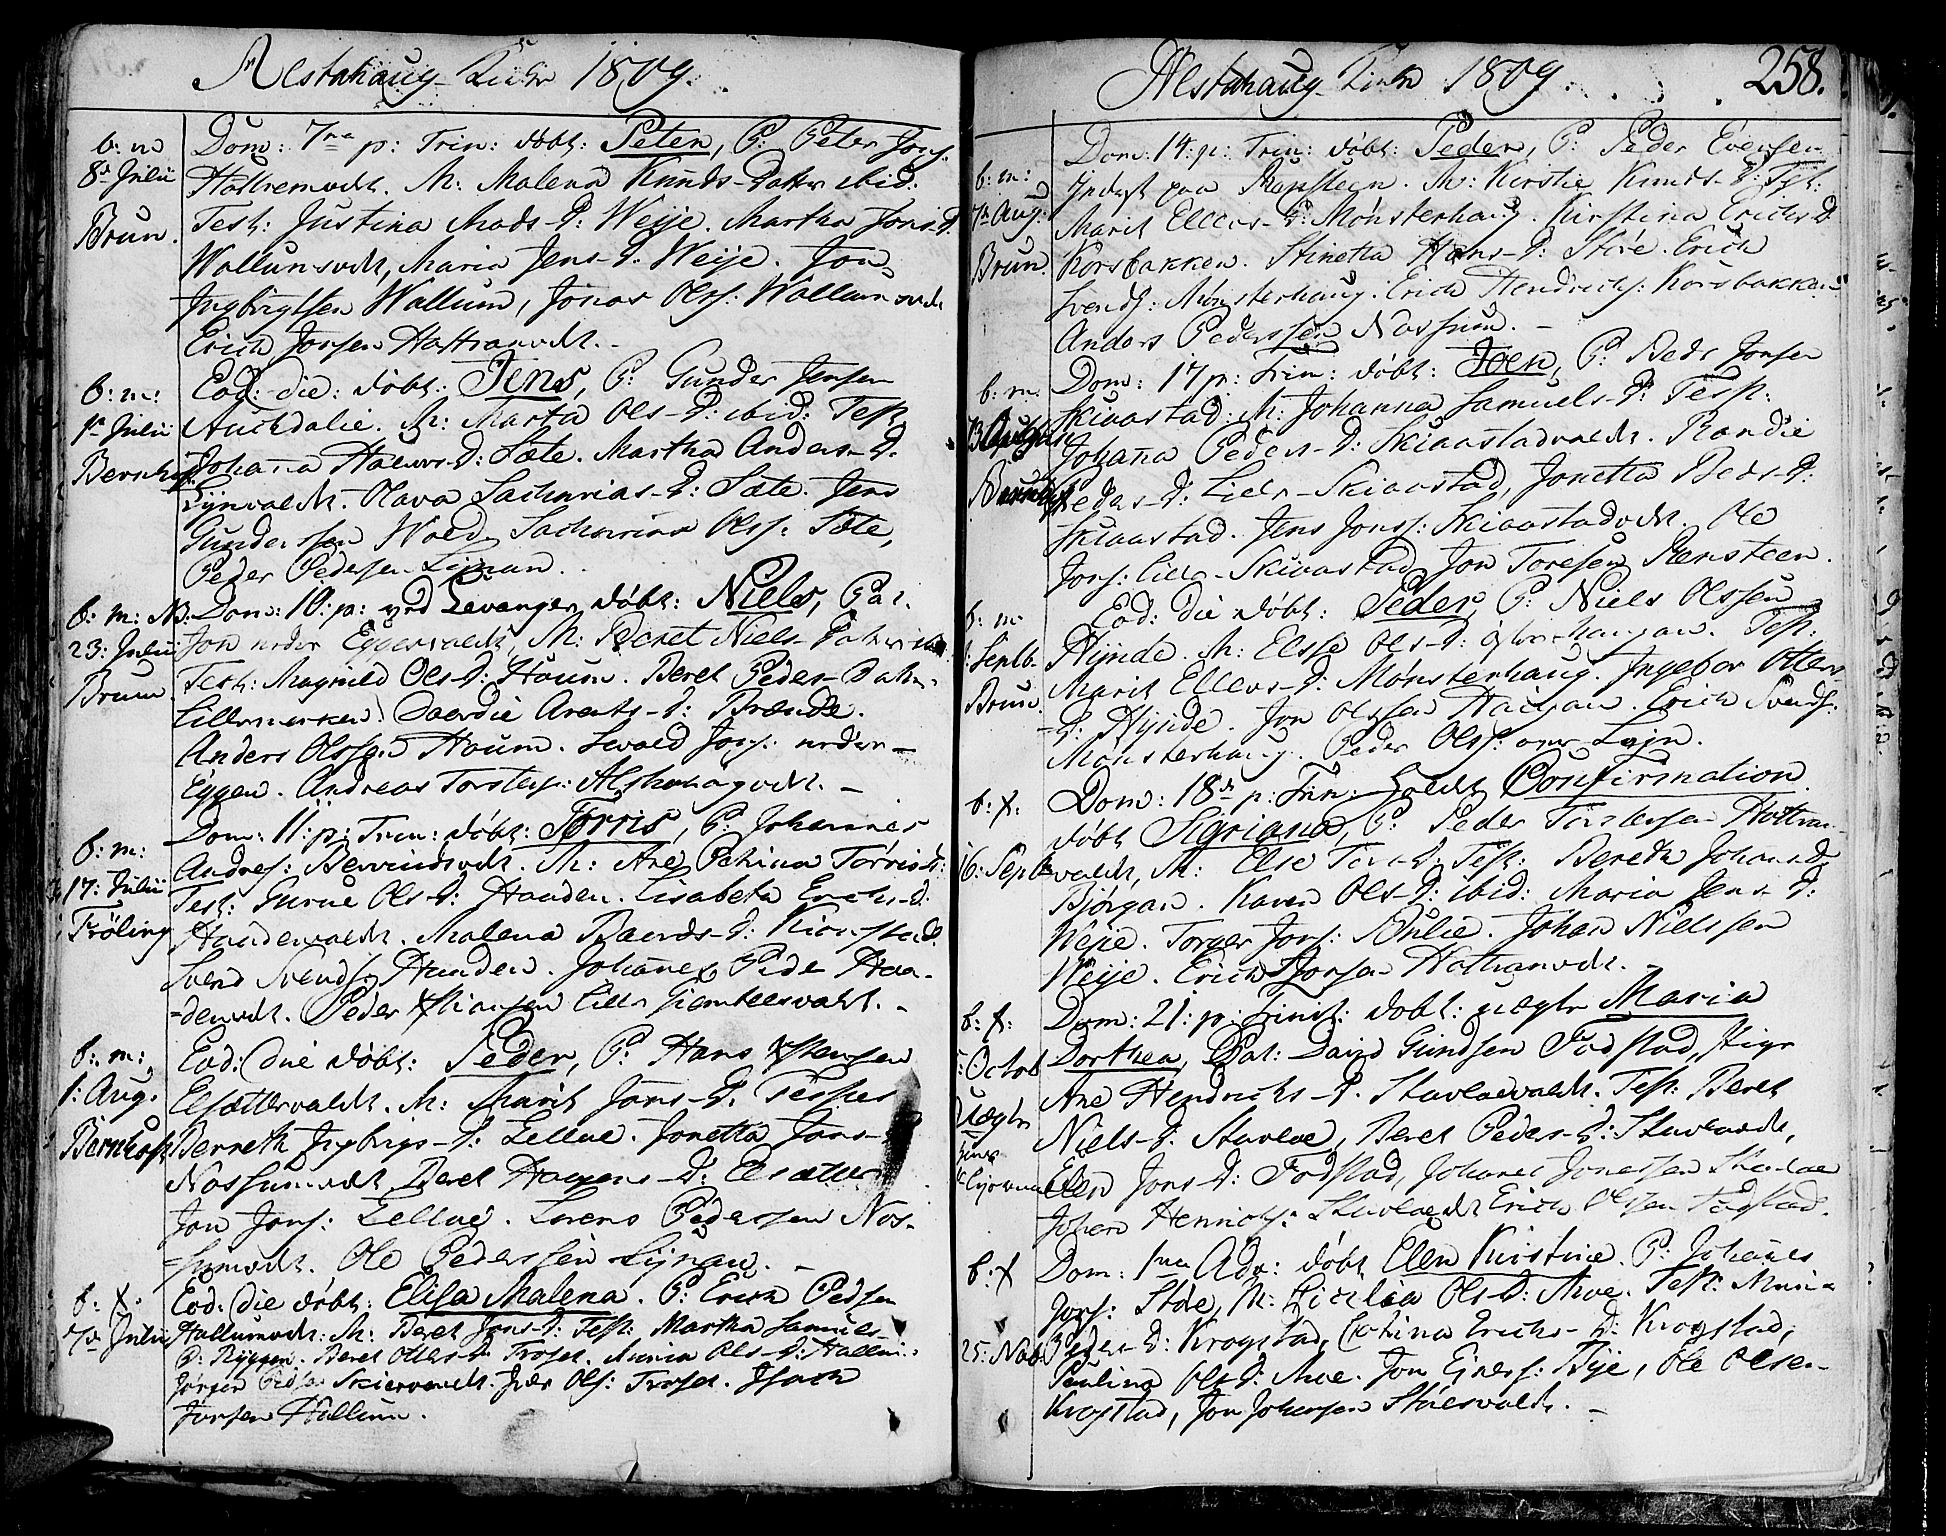 Alstahaug Kirke 1809.
b: m
8de Julii
Brun.
Dom: 7ma p: Trin: døbt: Peter, P: Peter Jons:
Hattremvdt. M: Malena Knuds-Datter ibid:
Test: Justina Mads-D: Weije. Martha Jons-D:
Wallumsvdt, Maria Jens-D: Weije. Jon
Ingbrigtsen Wallum, Jonas Olss: Wallumsvdt
Erich Jonsen Hattranvdt.
b: m:
1ste Julii
Bernhoft
Eod: die: døbt: Jens, P: Gunder Jensen
Auchdalie. M: Marta Ols-D: ibid: Test:
Johanna Haldors-D: Sæte. Martha Anders-D:
Lynvaldt. Olava Sacharias-D: Sæte. Jens
Gundersen Wold, Sacharias Olss: Sæte,
Peder Pedersen Lynan.
b: m:
23: Julii
Brun
NB: Dom: 10: p: ved Levanger døbt: Niels, Pat:
Jon neder Eggesvaldt, M: Beret Niels-Datter ibid.
Test: Magnild Ols-D: Houm. Beret Peders-Datter
Lillemarken. Baardie Arents-D: Brænde.
Anders Olssen Houm. Sivald Jons: neder-
Eggen. Andreas Torstens: Alstahaugvdt.
b: m:
17: Julii
Frøling
Dom: 11: p: Trin: døbt: Torris, P: Johannes
Andres: Berrindsvdt. M: Ane Cathrina Torris-D:
Test: Gurue Ols-D: Haaden. Lisabeta Erichs-D:
Haadenvaldt. Malena Baards-D: Kiønstad.
Svend Svends: Haaden. Johanes Peder Haa-
=denvdt. Peder Hansen Lille Giemblesvaldt.
b: m:
1: Aug.
Bernhoft
Eod: die døbt: Peder, P: Hans Stensen
Elsættervaldt. M: Marit Jons-D: Testes
Berreth Ingbrigs-D: Lellue. Jonetta Jons-D:
Nossumvdt. Beret Haagens-D: Elsætter
Jon Jons: Lellue. Lorens Pedersen Nos-
=sumvdt. Ole Pederssen Lynau.
b: f:
7de Julii
Eod: die døbt: Elisa Malena. P: Erich Pedsen
Hallumvdt: M: Beret Jons-D: Test: Martha Samuels-
D: Ryggen. Beret Ottes-D: Troset. Maria Ols-D: Hallum:
Jørgen Peders: Skiervevdt. Peder Ols: Troset. Isach
Jonsen Hallum.

Alstahaug Kirke 1809.
258.
b: m:
7de Aug:
Brun.
Dom: 14: p: Trin: døbt: Peder, P: Peder Evensen
Inderst paa Ramsteen. M: Kirstie Knuds-D: Test:
Marit Ellevs-D: Mønsterhaug. Kirstina Erichs-D:
Korsbakken. Stinetta Hans-D: Støe. Erich
Svends: Mønsterhaug. Erich Hendrichs: Korsbakken
Anders Pederssen Nossum.
b: m:
13
Bernhoft
Dom: 17 p: Trin: døbt: Joen, P: Peder Jonsen
Skiaastad. M: Johanna Samuels-D: Test:
Johana Peders-D: Skiaastadvaldt. Randie
Peders-D: Lille-Skiaastad, Jonetta Peders-D:
Skiaastad. Jens Jonss: Skiaastadvdt. Ole
Jons: Lille-Skiaastad, Jon Toresen Ramsteen.
b: m:
Septb.
Brun.
Eod: die døbt: Peder, P: Niels Olssen
Hynde. M: Elsse Ols-D: Østerhaugan. Test:
Marit Ellevs-D: Mønsterhaug. Ingebor Otters
=D: Hynde. Jon Olssen Haugan. Erich Svends:
Mønsterhaug. Peder Olss: over-Lyn.
b: f:
16: Septb
Dom: 18de p: Trin: holdt Confirmation
døbt Sigriana, P: Peder Torstensen Hattran-
valdt, M: Else Tore-D: Test: Bereth Johans-D:
Bjørgan. Karen Ols-D: ibid: Maria Jens-D:
Weije. Torger Jons: Bulie. Johan Nielssen
Weije. Erich Jonsen Hattranvdt.
b: f:
Octob
Uægte
Dom: 21: p: Trinit: døbt: uægte Maria
Dorthea, Pat: David Gundsen Fodstad, Pige
Ane Hendrichs-D: Stavloevaldt. Test: Beret
Niels-D: Stavloe, Beret Peders-D: Stavloevdt,
Elen Jons-D: Fodstad, Johanes Jonessen Stavloe
Johan Henrichs: Stavloevdt Erich Olssen Fodstad.
b: f
25: Nov:
Dom: 1ma Adv: døbt Elen Kirstine. P: Johanes
Jons: Støe, M: Liselia Ols-D: Moe. Test: Maria
Peders-D: Krogstad, Cathrina Erichs-D: Krogstad,
Paulina Ols-D: Moe. Jon Ejners: Bye, Ole Olsen
Krogstad, Jon Johansen Støesvaldt.